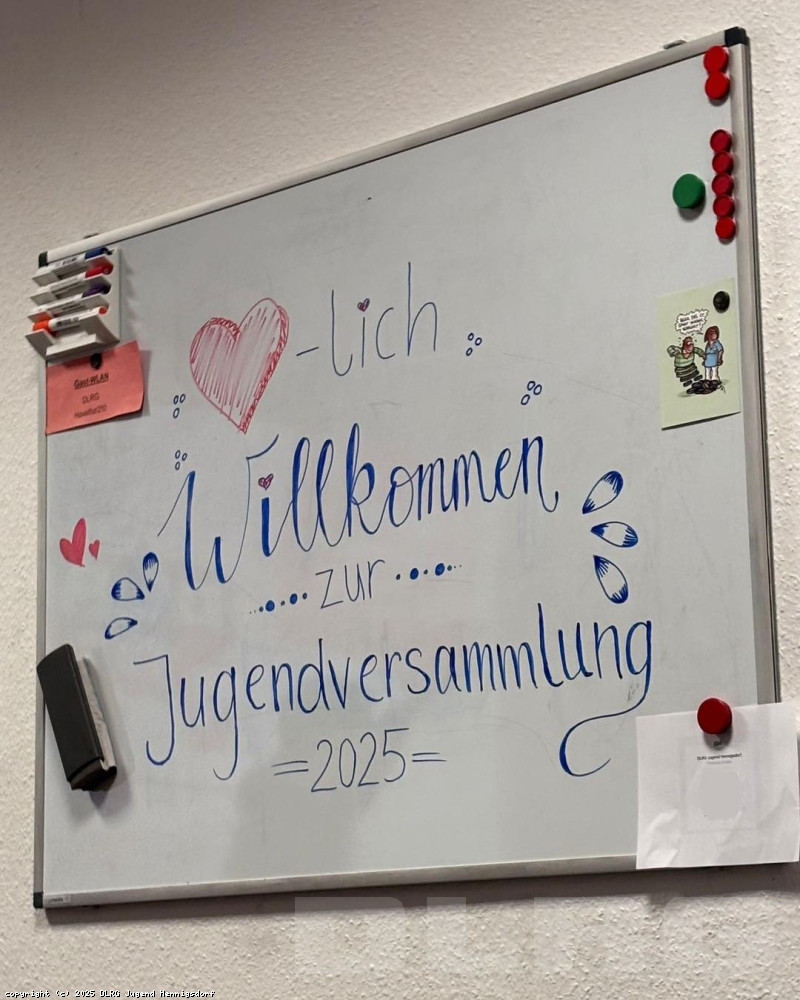 -lich
Willkommen
zur
Jugendversammlung
=2025=
Gast-WLAN
DLRG
DLRG-Jugend Hennigsdorf
copyright (c) 2025 DLRG Jugend Hennigsdorf